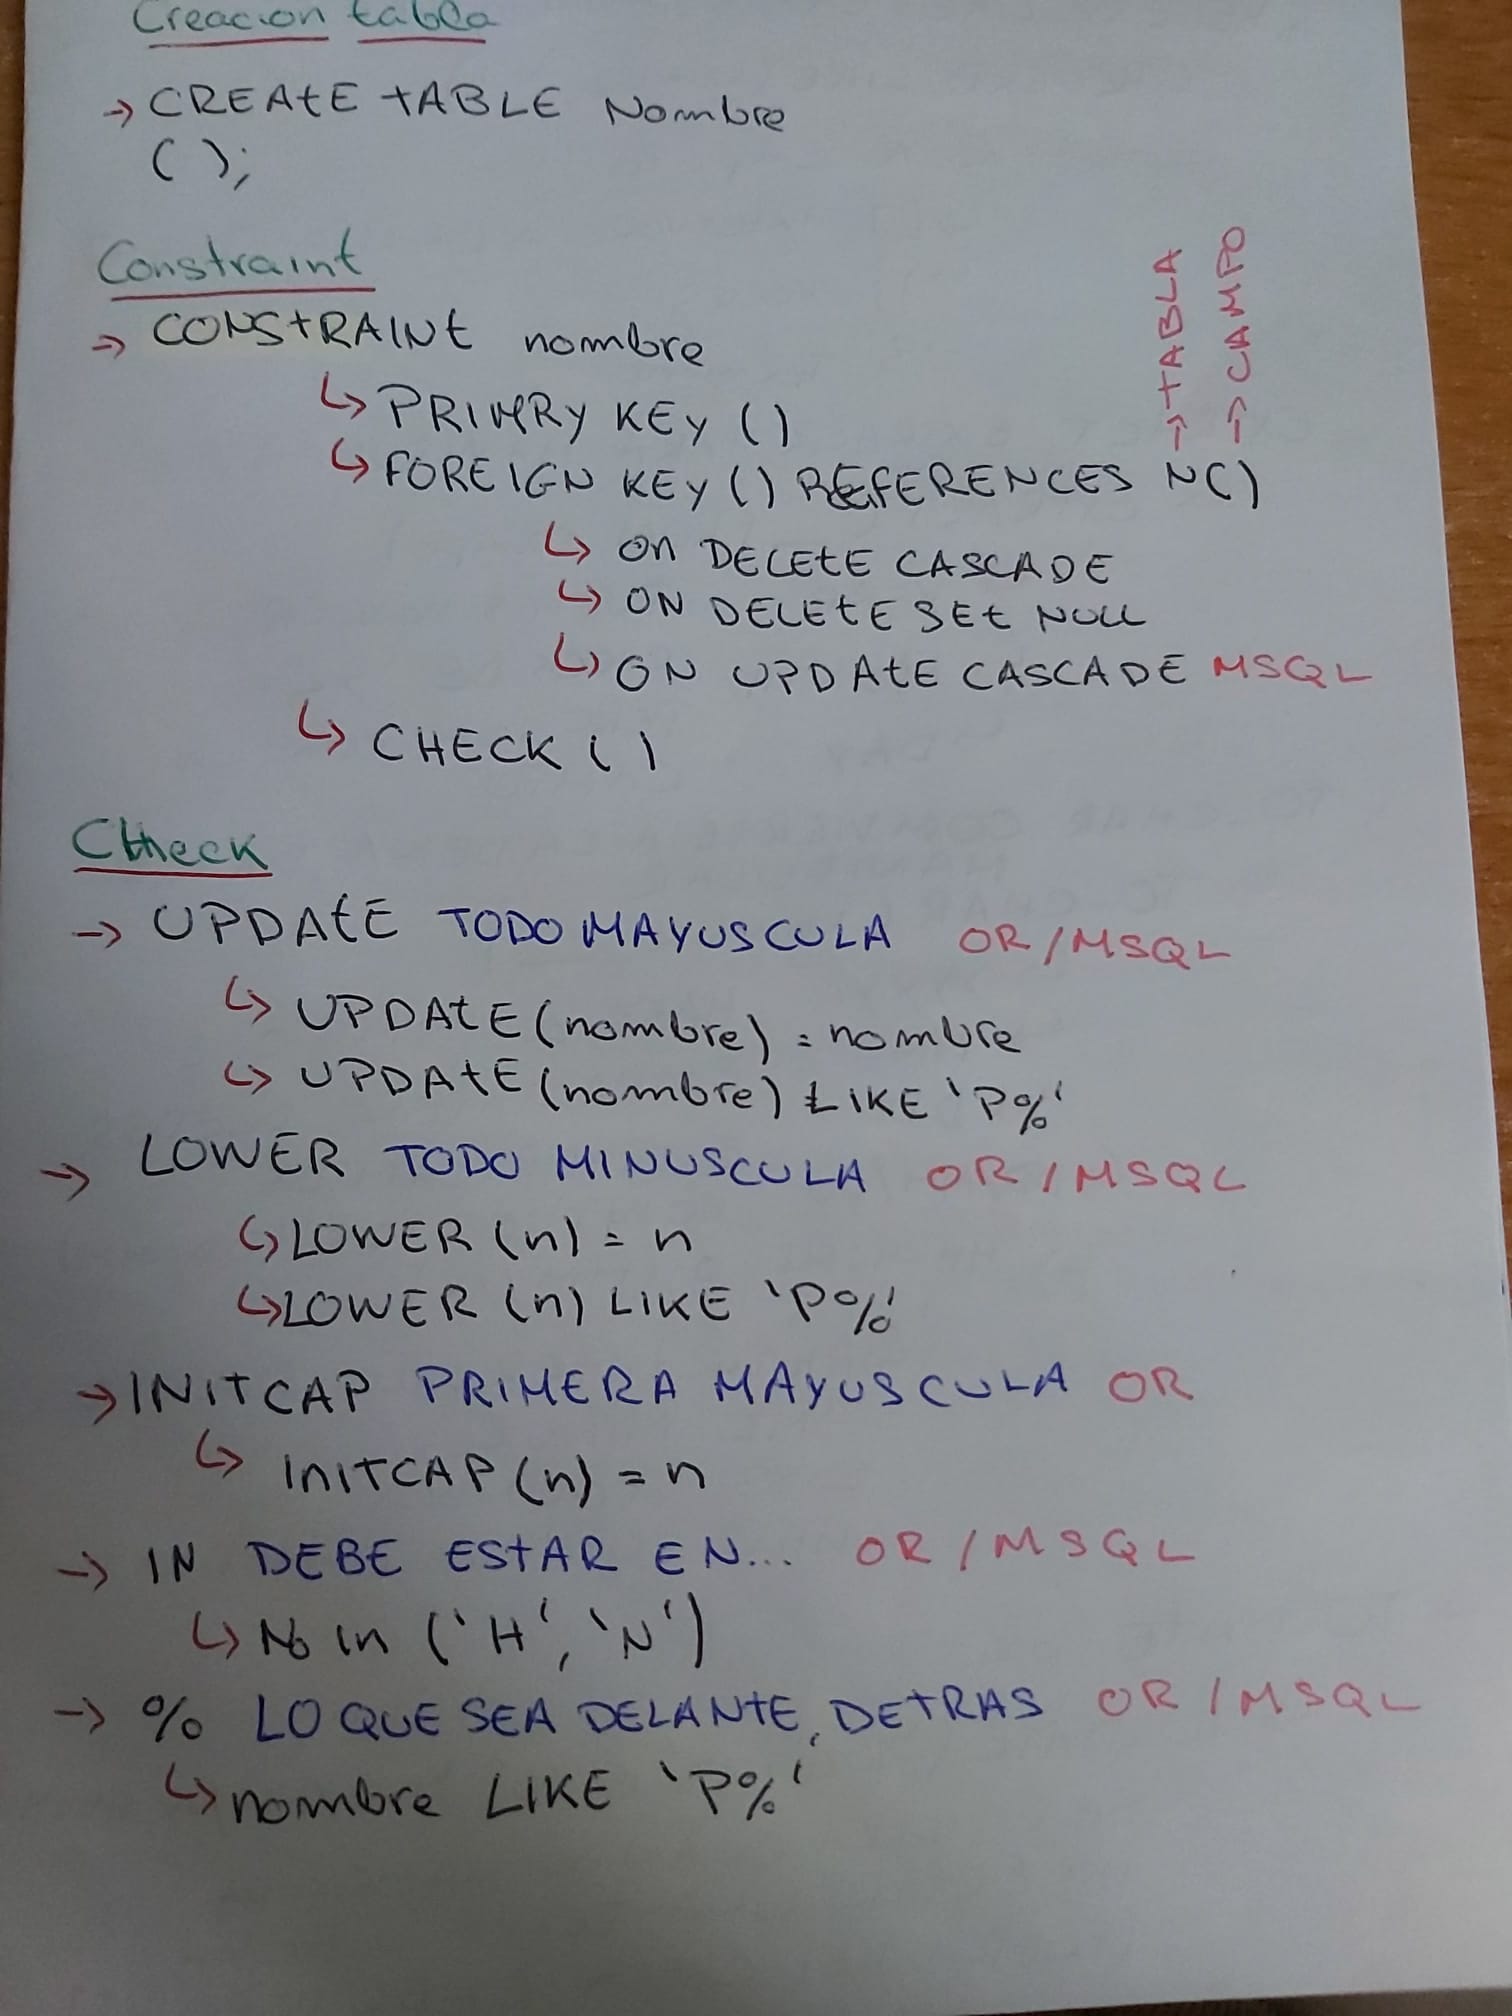 Creacion tabla
→ CREATE TABLE Nombre
( );
Constraint
→ CONSTRAINT nombre
↳ PRIMRY KEY ()
↳ FOREIGN KEY () REFERENCES N()
→ TABLA
→ CAMPO
↳ ON DELETE CASCADE
↳ ON DELETE SET NULL
↳ ON UPDATE CASCADE MSQL
↳ CHECK ( )
Check
→ UPDATE TODO MAYUSCULA OR/MSQL
↳ UPDATE (nombre) = nombre
↳ UPDATE (nombre) LIKE 'P%'
→ LOWER TODO MINUSCULA OR/MSQL
↳ LOWER (n) = n
↳ LOWER (n) LIKE 'P%'
→ INITCAP PRIMERA MAYUSCULA OR
↳ INITCAP (n) = n
→ IN DEBE ESTAR EN... OR/MSQL
↳ in ('H', 'N')
→ % LO QUE SEA DELANTE, DETRAS OR/MSQL
↳ nombre LIKE 'P%'